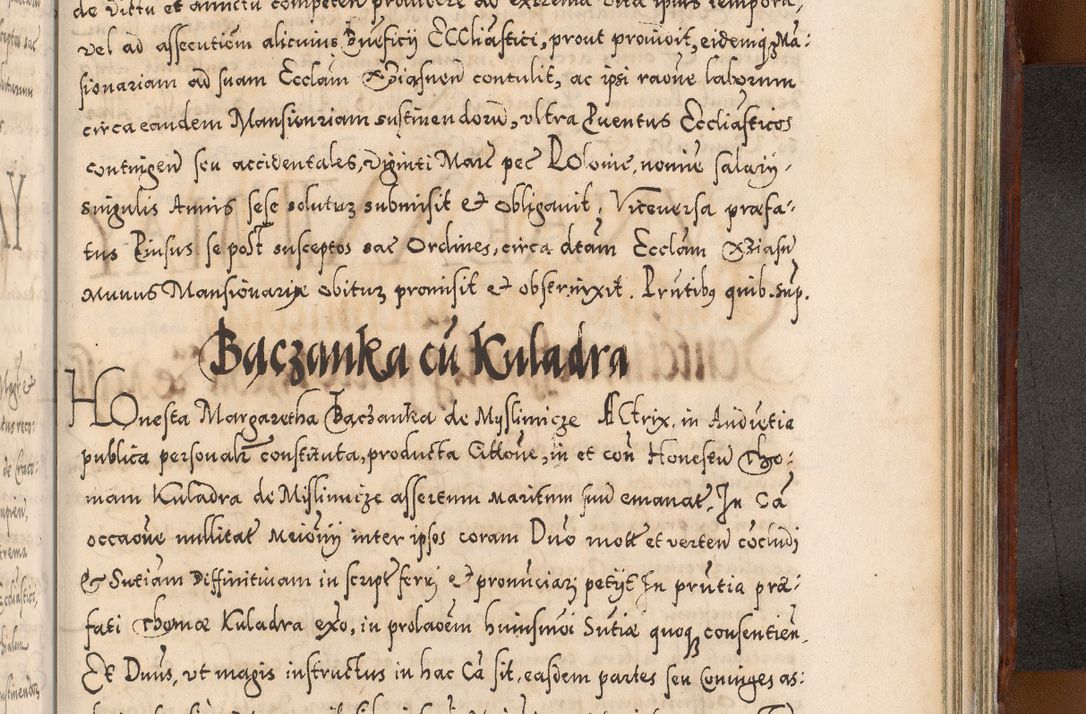 de victu et amictu competen providere ad extrema vitæ ipius tempora,
vel ad assecutiōm alicuius Bneficij ECCliastici, prout promovit, eidemqꝫ Ma-
sionariam ad suam Ecclam contulit, ac ipsi raoне laborum
circa eandem Mansionriam sustinendorū, ultra Puentus Eccliasticos
contingen̄ seu accidentales, viginti Marc pec Polonie, nomine salary
singulis Annis sese soluturꝫ submisit et obligavit. Viceversa præfa-
tus Pinsus se post susceptos sac Ordines, circa dtam Ecclam
Munus Mansionariæ obiturꝫ promisit et obstrinxit. Prntibꝫ quib. sup.
Baczanka cū Kuladra
HOnesta Margaretha Bączanka de Myslimicze ACtrix, in Audiētia
publica personalr constituta, producta Citt̄one, in et con̄ Honestū Tho-
mam Kuladra de Mislimicze assertum maritum suū emanat̄. In Cā
occaōne nullitat̄ Mr̄iōnij inter ipsos coram Dn̄o mott et verten̄ cōcludi
et Sn̄tiām Diffinitivam in script̄ ferrj et pronūciarj petijt In prn̄tia præ-
fati Thomæ Kuladra exo, in prolaōem huiusmōi Sn̄tiæ quoqꝫ consentien.
Et Dn̄us, ut magis instructus in hac Cā sit, easdem partes seu Coniuges as-